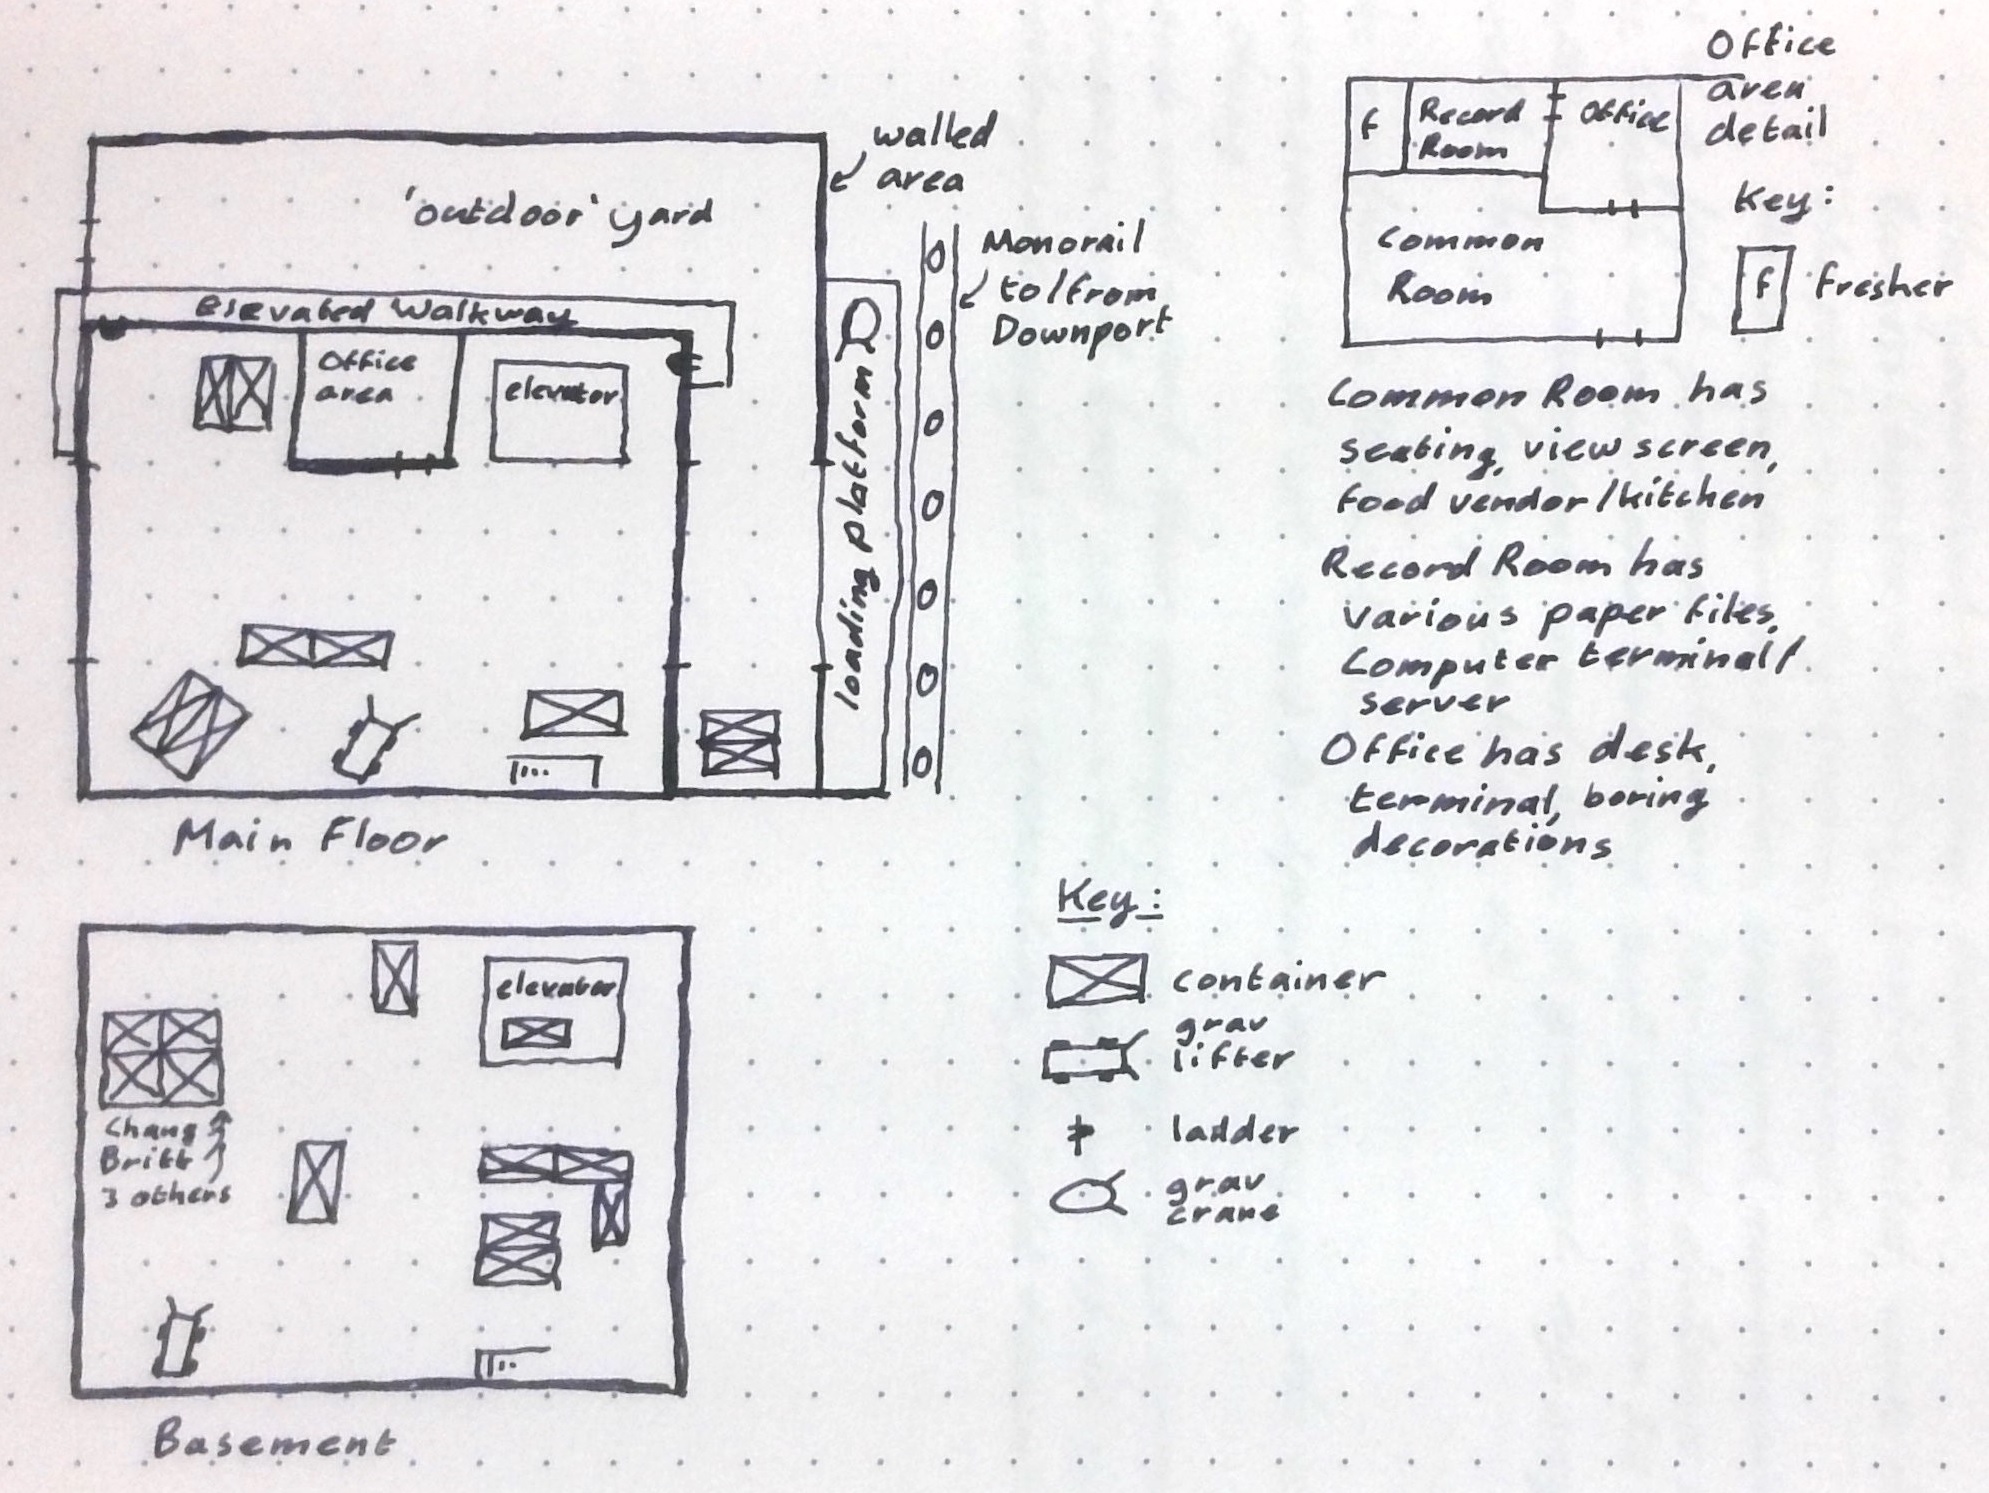 walled
area
'outdoor' yard
Monorail
to/from
Downport
elevated walkway
Office
area
elevator
loading platform
Main Floor
elevator
Chang
Britt
3 others
Basement
Office
area
detail
f
Record
Room
Office
Common
Room
Key:
f fresher
Common Room has
seating, view screen,
food vendor/kitchen
Record Room has
various paper files,
Computer terminal/
server
Office has desk,
terminal, boring
decorations
Key:
container
grav
lifter
ladder
grav
crane